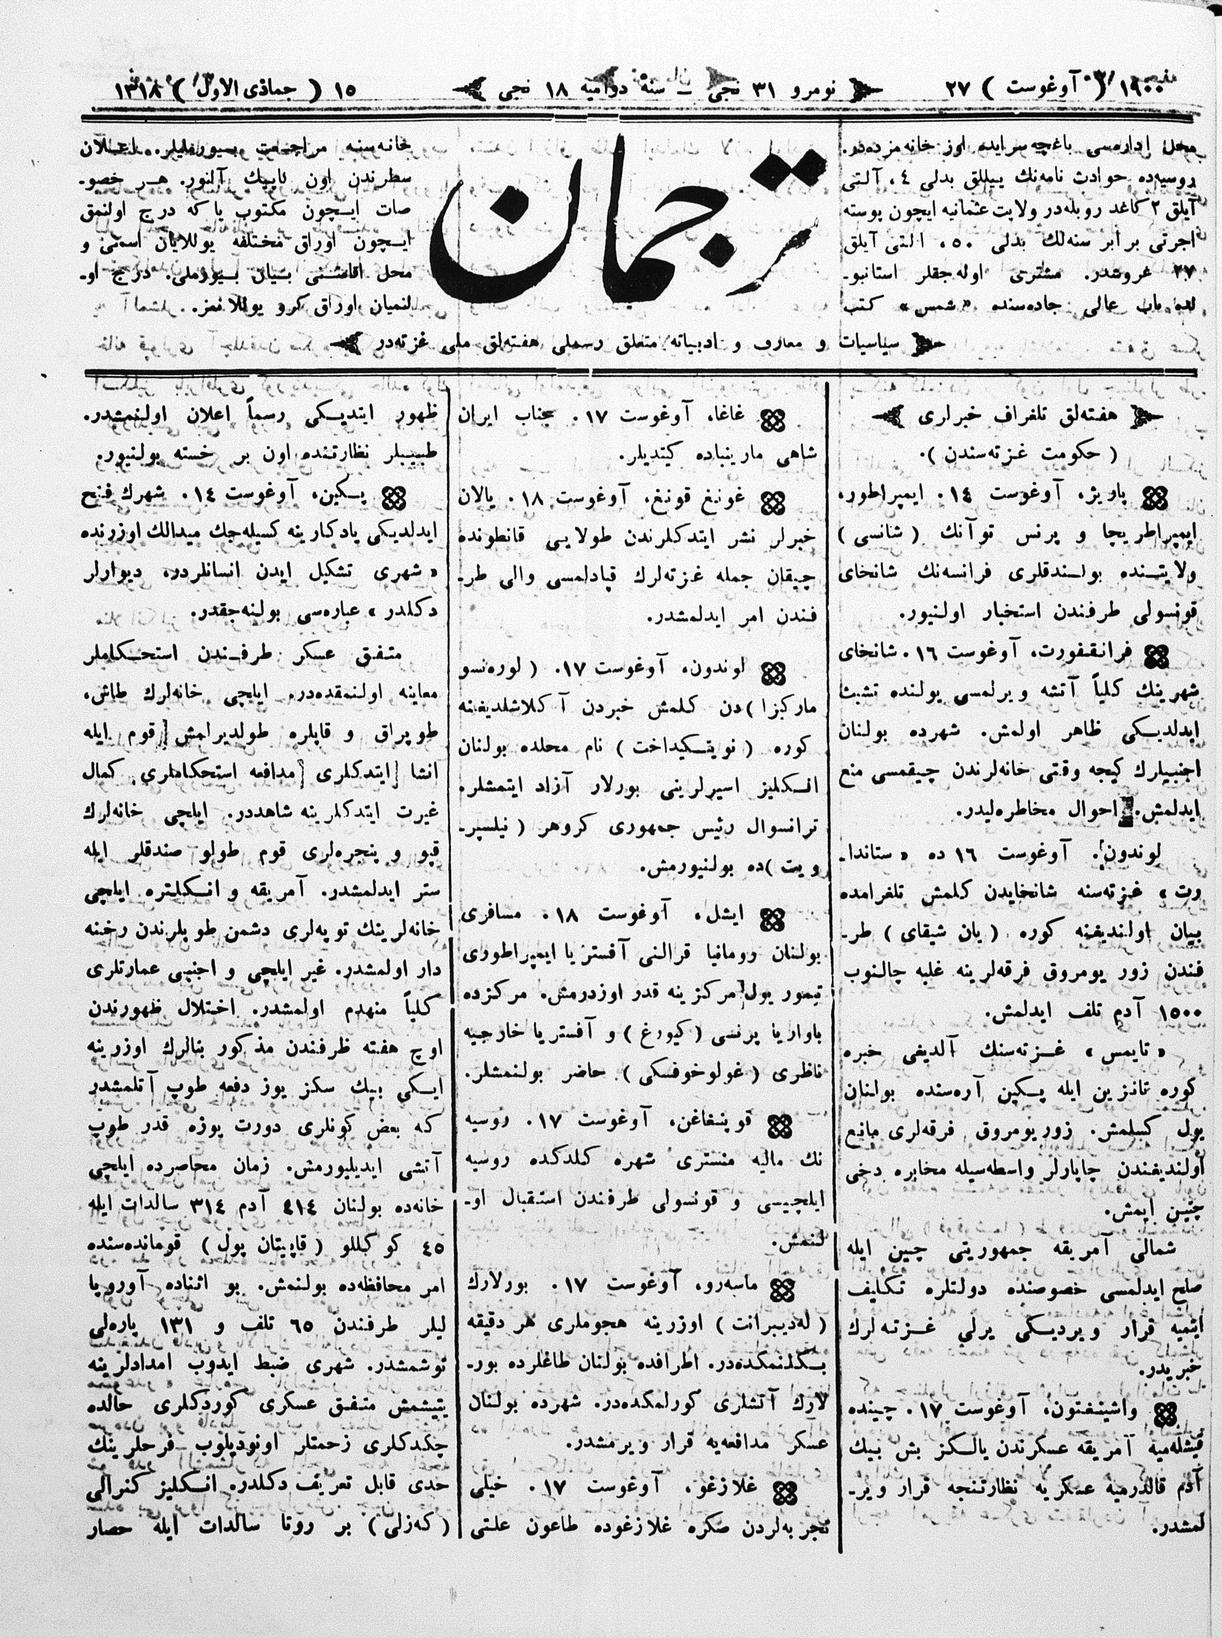 ١٩٠٠ ( آوغوست ) ٢٧
نومرو ٣١ نجی — سنه دوامیه ١٨ نجی
١٥ ( جماذی الاول ) ١٣١٨
محل اداره‌سی باغچه‌سرایده اوز خانه‌مزده‌در.
روسیه‌ده حوادث نامه‌نك ییللق بدلی ٤، آلتی
آیلق ٢ کاغد روبله‌در ولایت عثمانیه ایچون پوسته
اجرتی برابر سنه‌لك بدلی ٥٠، التی آیلق
٢٧ غروشدر. مشتری اوله‌جقلر استانبو-
لده باب عالی جاده‌سنده «شمس» کتب
ترجمان
خانه‌سنه مراجعت بیورملیلر. اعلان
سطرندن اون کاپیك آلنور. هر خصو-
صات ایچون مکتوب یا که درج اولنمق
ایچون اوراق مختلفه یوللایان اسمنی و
محل اقامتنی بیان بیورملی. درج او-
لنمیان اوراق کرو یوللانمز.
سیاسیات و معارف و ادبیاته متعلق رسملی هفته‌لق ملی غزته‌در
هفته‌لق تلغراف خبرلری
( حکومت غزته‌سندن ).
پاریژ، آوغوست ١٤. ایمپراطور،
ایمپراطریچا و پرنس توآنك ( شانسی )
ولایتنده بولندقلری فرانسه‌نك شانخای
قونسولی طرفندن استخبار اولنیور.
فرانقفورت، آوغوست ١٦. شانخای
شهرینك کلیاً آتشه ویرلمسی یولنده تشبث
ایدلدیکی ظاهر اولمش. شهرده بولنان
اجنبیلرك کیجه وقتی خانه‌لرندن چیقمسی منع
ایدلمش. احوال مخاطره‌لیدر.
لوندون، آوغوست ١٦ ده «ستاندا-
رت» غزته‌سنه شانخایدن کلمش تلغرامده
بیان اولندیغنه کوره ( یان شیقای ) طر-
فندن زور یومروق فرقه‌لرینه غلبه چالنوب
١٥٠٠ آدم تلف ایدلمش.
«تایمس» غزته‌سنك آلدیغی خبره
کوره تانزین ایله پکین آره‌سنده بولنان
یول کسلمش. زور یومروق فرقه‌لری مانع
اولندیغندن چاپارلر واسطه‌سیله مخابره دخی
چتین ایمش.
شمالی آمریقه جمهوریتی چین ایله
صلح ایدلمسی خصوصنده دولتلره تکلیف
ایتمیه قرار ویردیکی یرلی غزته‌لرك
خبریدر.
واشینغتون، آوغوست ١٧. چینده
قیشله‌میه آمریقه عسکرندن یالکز بش بیك
آدم قالدرمیه عسکریه نظارتنجه قرار ویر-
لمشدر.
غاغا، آوغوست ١٧. جناب ایران
شاهی مارینباده کیتدیلر.
غونغ قونغ، آوغوست ١٨. یالان
خبرلر نشر ایتدکلرندن طولایی قانطونده
چیقان جمله غزته‌لرك قپادلمسی والی طر-
فندن امر ایدلمشدر.
لوندون، آوغوست ١٧. ( لوره‌نسو
مارکزا )دن کلمش خبردن آکلاشلدیغنه
کوره ( نویتکیداخت ) نام محلده بولنان
انکلیز اسیرلرینی بورلار آزاد ایتمشلر.
ترانسوال رئیس جمهوری کروهر ( نیلسپر-
ویت )ده بولنیورمش.
ایشل، آوغوست ١٨. مسافری
بولنان رومانیا قرالنی آفستریا ایمپراطوری
تیمور یول مرکزینه قدر اوزدرمش. مرکزده
باواریا پرنسی ( کیورغ ) و آفستریا خارجیه
ناظری ( غولوخوفسکی ) حاضر بولنمشلر.
قوپنغاغن، آوغوست ١٧. روسیه
نك مالیه منستری شهره کلدکده روسیه
ایلچیسی و قونسولی طرفندن استقبال او-
لنمش.
ماسه‌رو، آوغوست ١٧. بورلارك
( له‌دیبرانت ) اوزرینه هجوملری هر دقیقه
بکلنمکده‌در. اطرافده بولنان طاغلرده بور-
لارك آتشلری کورلمکده‌در. شهرده بولنان
عسکر مدافعه‌یه قرار ویرمشدر.
غلازغو، آوغوست ١٧. خیلی
تجربه‌لردن صکره غلازغوده طاعون علتی
ظهور ایتدیکی رسماً اعلان اولنمشدر.
طبیبلر نظارتنده اون بر خسته بولنیور.
پکین، آوغوست ١٤. شهرك فتح
ایدلدیکی یادکارینه کسیله‌جك میدالك اوزرنده
«شهری تشکیل ایدن انسانلردر، دیوارلر
دکلدر» عباره‌سی بولنه‌جقدر.
متفق عسکر طرفندن استحکاملر
معاینه اولنمقده‌در. ایلچی خانه‌لرك طاش،
طوپراق و قاپلره طولدیرلمش قوم ایله
انشا ایتدکلری مدافعه استحکاملری کمال
غیرت ایتدکلرینه شاهددر. ایلچی خانه‌لرك
قپو و پنجره‌لری قوم طولو صندقلر ایله
ستر ایدلمشدر. آمریقه و انکلتره ایلچی
خانه‌لرینك توپه‌لری دشمن طوپلرندن رخنه
دار اولمشدر. غیر ایلچی و اجنبی عمارتلری
کلیاً منهدم اولمشدر. اختلال ظهورندن
اوچ هفته ظرفندن مذکور بنالرك اوزرینه
ایکی بیك سکز یوز دفعه طوپ آتلمشدر
که بعض کونلری دورت یوزه قدر طوپ
آتشی ایدیلیورمش. زمان محاصره‌ده ایلچی
خانه‌ده بولنان ٤١٤ آدم ٣١٤ سالدات ایله
٤٥ کوکللو ( قاپیتان پول ) قومانده‌سنده
امر محافظه‌ده بولنمش. بو اثناده آوروپا
لیلر طرفندن ٦٥ تلف و ١٣١ یاره‌لی
توشمشدر. شهری ضبط ایدوب امدادلرینه
یتیشمش متفق عسکری کوردکلری حالده
چکدکلری زحمتلر اونودیلوب فرحلرینك
حدی قابل تعریف دکلدر. انکلیز کنرالی
( که‌زلی ) بر روتا سالدات ایله حصار